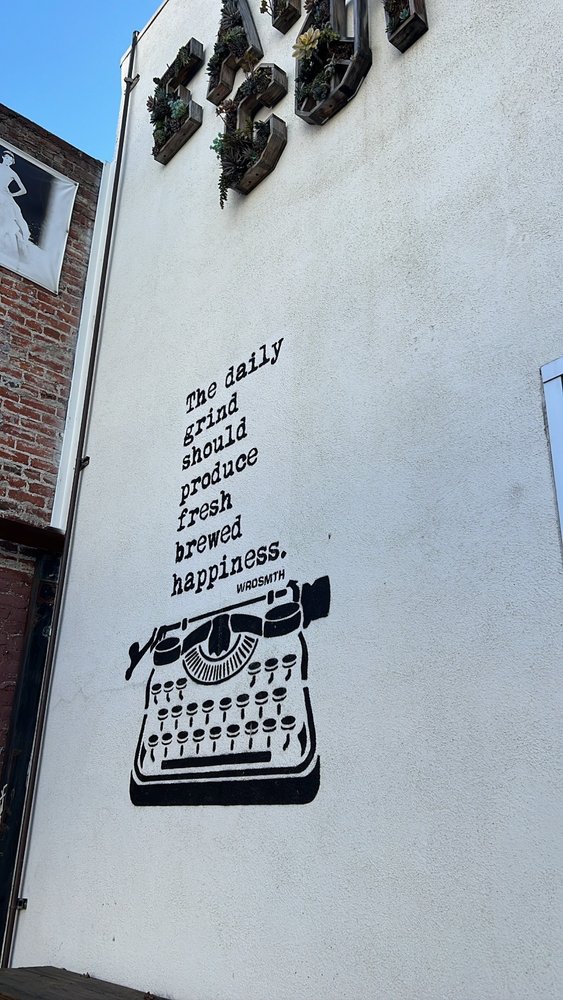 The daily
grind
should
produce
fresh
brewed
happiness.
WRDSMTH